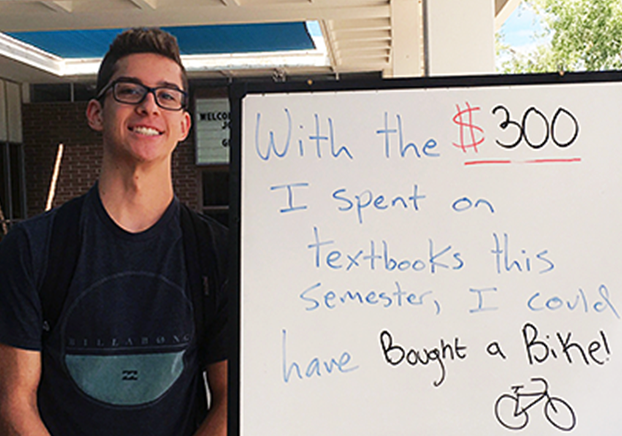 WELCO
With the $300
I spent on
textbooks this
semester, I could
have Bought a Bike!
BILLABONG